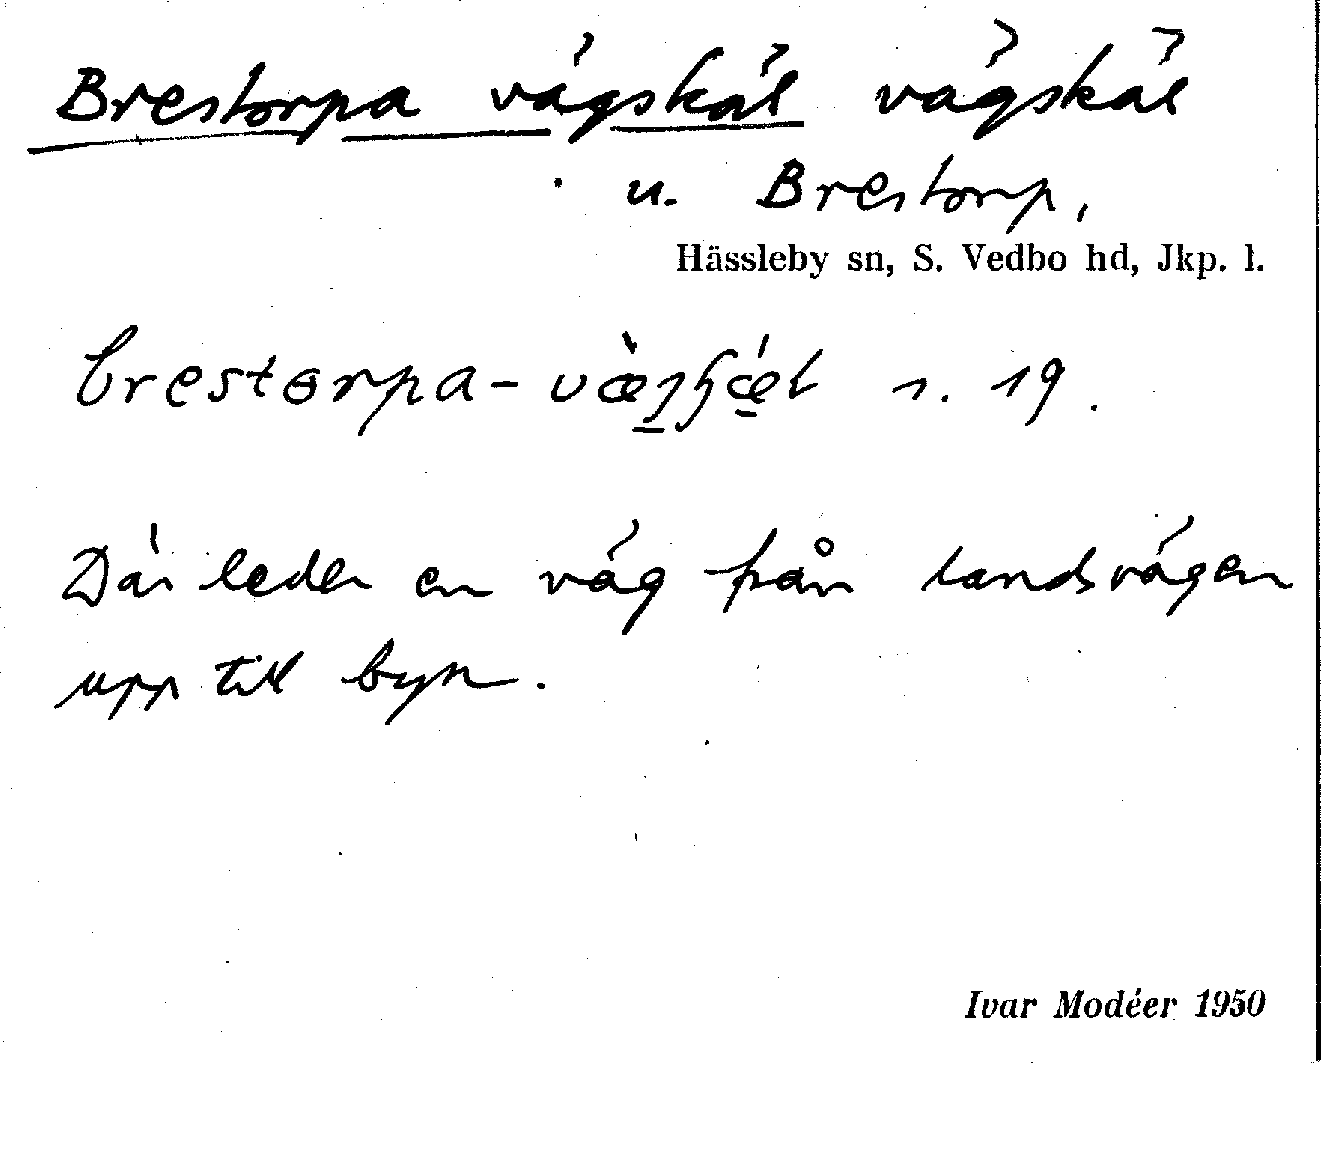 Brestorpa vägskäl vägskäl
u. Brestorp,
Hässleby sn, S. Vedbo hd, Jkp. l.
brestorpa- s. 19.
Där leder en väg från landsvägen
upp till byn.
Ivar Modéer 1950